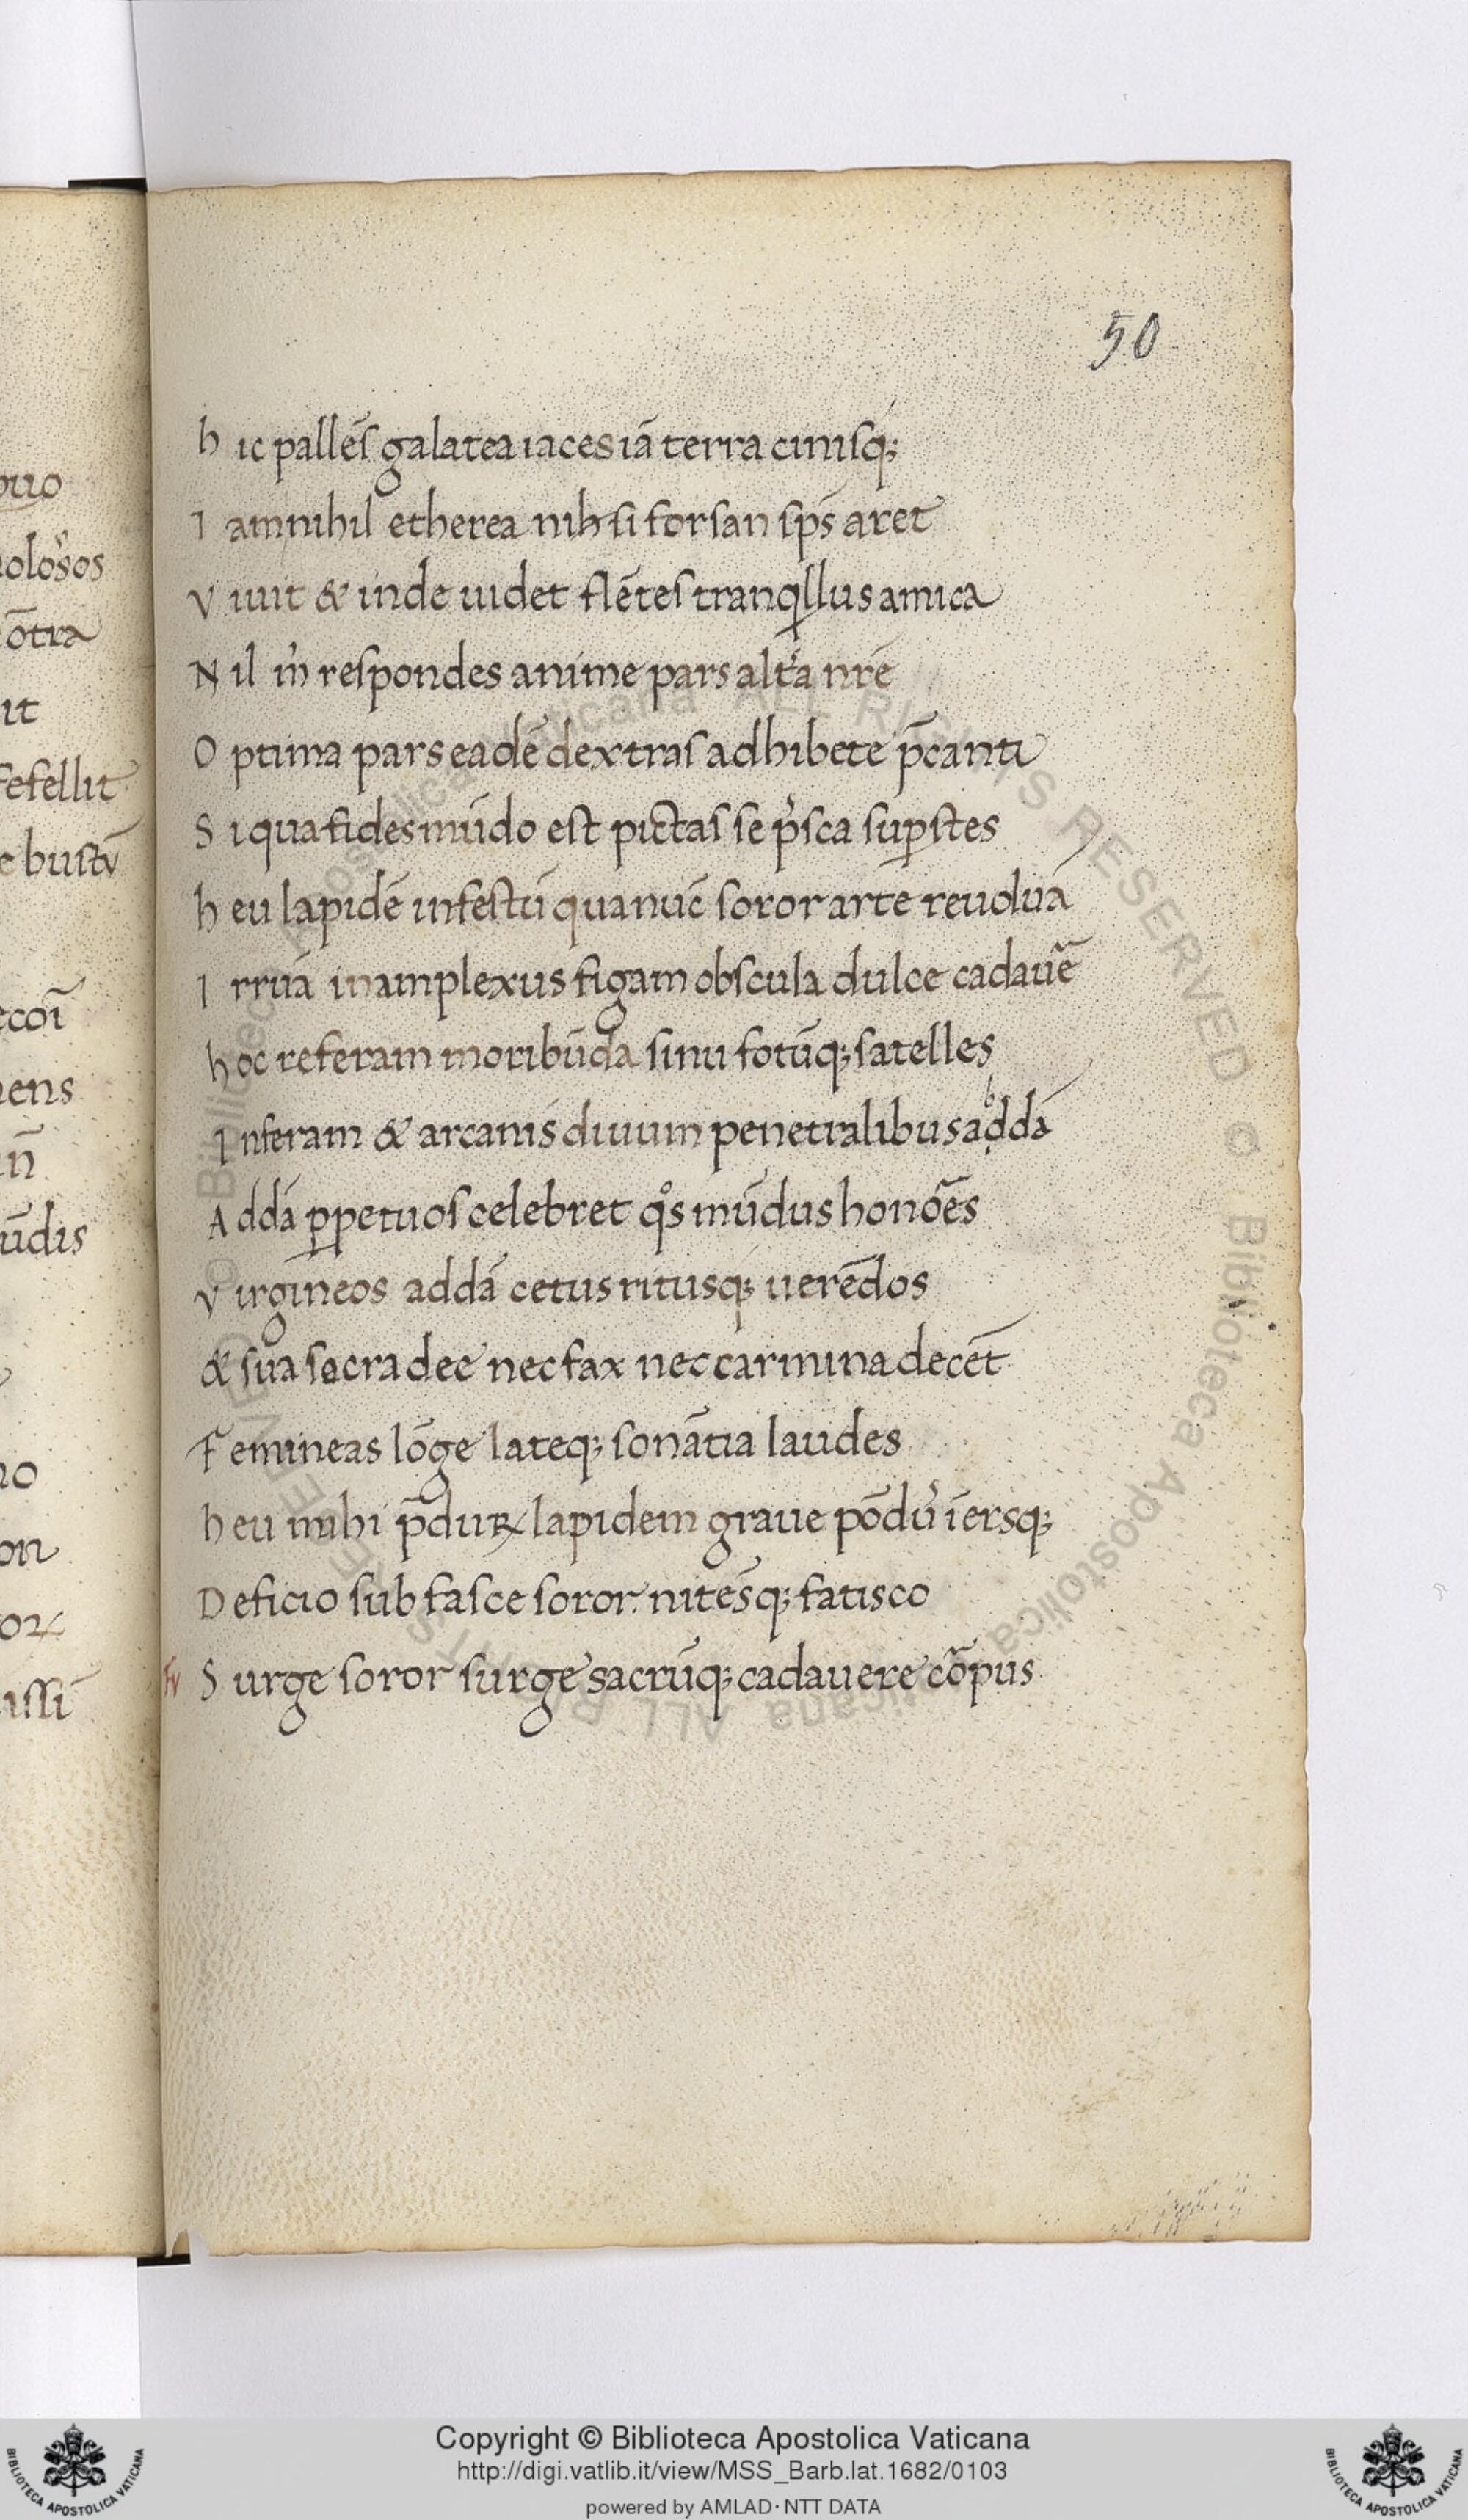 50
ouo
olos̓os
ōtra
it
fefellit
c bustv̄
ecoī
ens
n̄
ūdis
no
on
oꝝ
issī
h ic pallēſ galatea iaces iā terra ciniſq;
I am nihil etherea nih ſi forſan ſp̄s aret
V iuit & inde uidet flēteſ tranqͥllus amica
N il m̓ reſpondes anime pars alt̓a nr̄e
O ptima pars eadē dextraſ adhibete p̄canti
S i qua fides mūdo eſt pictaſ ſe p̓ſca ſuꝑſtes
h eu lapidē infeſtū qua nūc ſoror arte reuoluā
I rruā in amplexus figam obſcula dulce cadauē
h oc referam moribūda ſinu fotūq; ſatelles
I nferam & arcanis diuum penetralibus addā
b
A ddā ꝑpetuoſ celebret qͦs mūdus honōes
V irgineos addā cetus ritusq; uerēdos
& ſua ſacra dee nec fax nec carmina decēt
F emineas lōge lateq; ſonātia laudes
h eu mihi p̄duꝝ lapidem graue pōdu᾽ īersq;
D eficio ſub faſce ſoror. nitēſq; fatisco
Fv S urge ſoror ſurge sacrūq; cadauere cōpus
Copyright © Biblioteca Apostolica Vaticana
http://digi.vatlib.it/view/MSS_Barb.lat.1682/0103
powered by AMLAD·NTT DATA